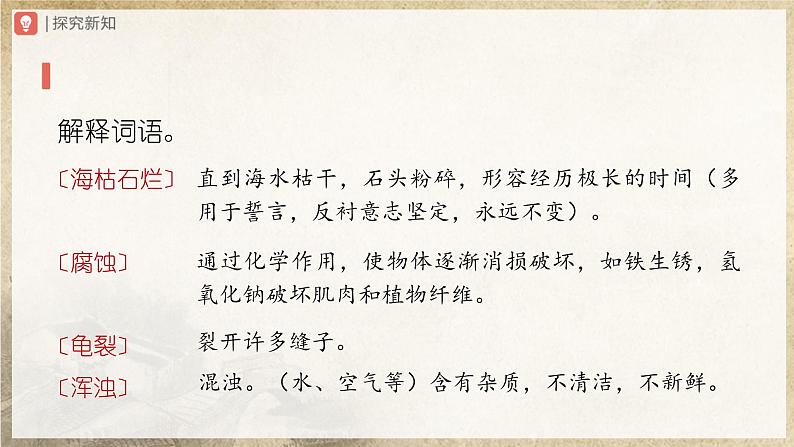 |探究新知
解释词语。
〔海枯石烂〕 直到海水枯干，石头粉碎，形容经历极长的时间（多
用于誓言，反衬意志坚定，永远不变）。
〔腐蚀〕 通过化学作用，使物体逐渐消损破坏，如铁生锈，氢
氧化钠破坏肌肉和植物纤维。
〔龟裂〕 裂开许多缝子。
〔浑浊〕 混浊。（水、空气等）含有杂质，不清洁，不新鲜。